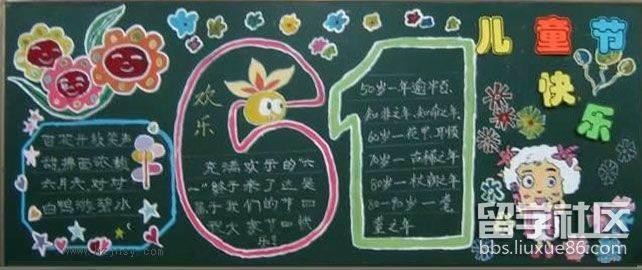 儿童节
快乐
61
欢
乐
百花开放笑声
六月天对对
白鸭游碧水
充满欢乐的“六
一”终于来了这是
属于我们的节日
祝大家节日快
乐!
50岁—年逾半百、
知非之年、知命之年
60岁—花甲、耳顺
70岁—古稀之年
80岁—杖朝之年
80—90岁—耄
耋之年
留学社区
bbs.liuxue86.com